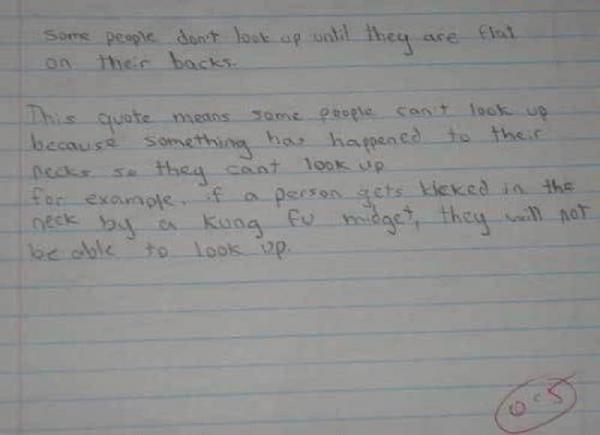 some people don't look up until they are flat
on their backs.
This quote means some people can't look up
because something has happened to their
necks so they cant look up
for example, if a person gets kicked in the
neck by a kung fu midget, they will not
be able to look up.
0.5